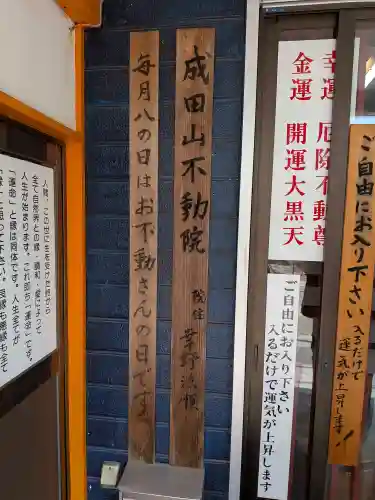 幸運 厄除不動尊
金運 開運大黒天
ご自由にお入り下さい
入るだけで
運気が上昇します
ご自由にお入り下さい
入るだけで運気が上昇します
成田山不動院
院住
毎月八の日はお不動さんの日です
人間、この世に生を受けた時から
全て自然界との縁・親和・愛によって
人生が始まります。これ即ち「運命」です。
「運命」と縁は同体です。人生全てが